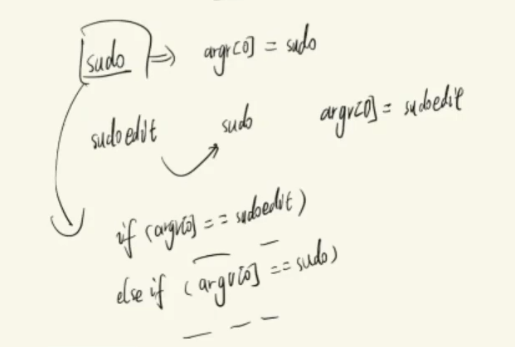 sudo ⇒ argv[0] = sudo
sudoedit sudo argv[0] = sudoedit
if (argv[0] == sudoedit)
else if (argv[0] == sudo)